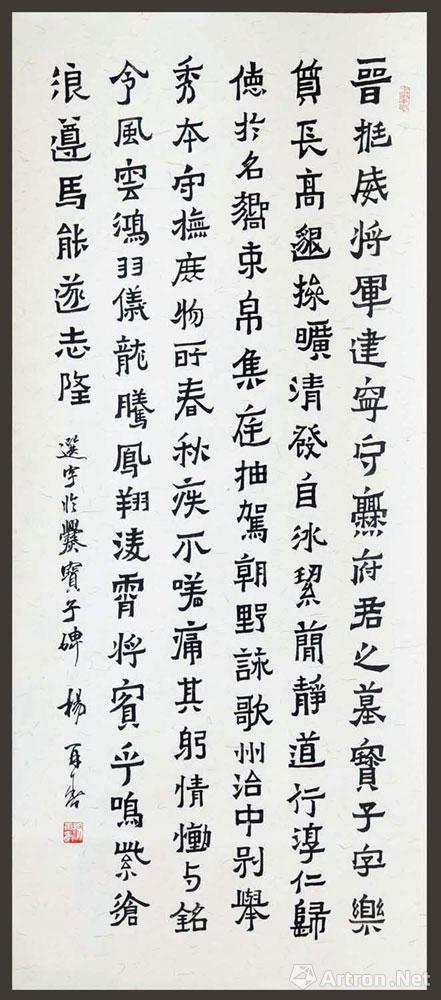 晉振威將軍建寧守爨府君之墓寶子字樂
質長高邈操曠清發自冰絜簡靜道行淳仁歸
德於名嚮束帛集庭抽駕朝野詠歌州治中別舉
秀本守撫庶物所春秋疾不嗟痛其躬情慟与銘
令風雲鴻羽儀龍騰鳳翔淩霄將賓乎鳴紫滄
浪遵馬能遂志隆 選字臨爨寶子碑 楊
Artron.Net